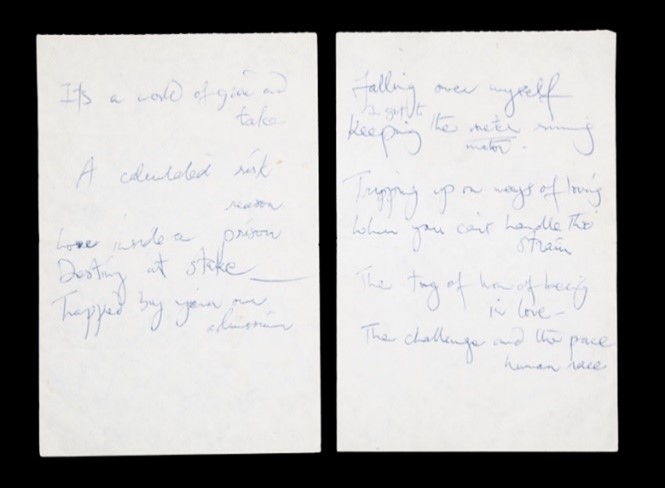 It's a world of give and
take
A calculated risk
reason
Love inside a prison
Destiny at stake
Trapped by your own
admission
Falling over myself
I got to
Keeping the meter running
motor
Tripping up on ways of loving
When you can't handle the
strain
The tug of war of being
in love
The challenge and the pace
human race